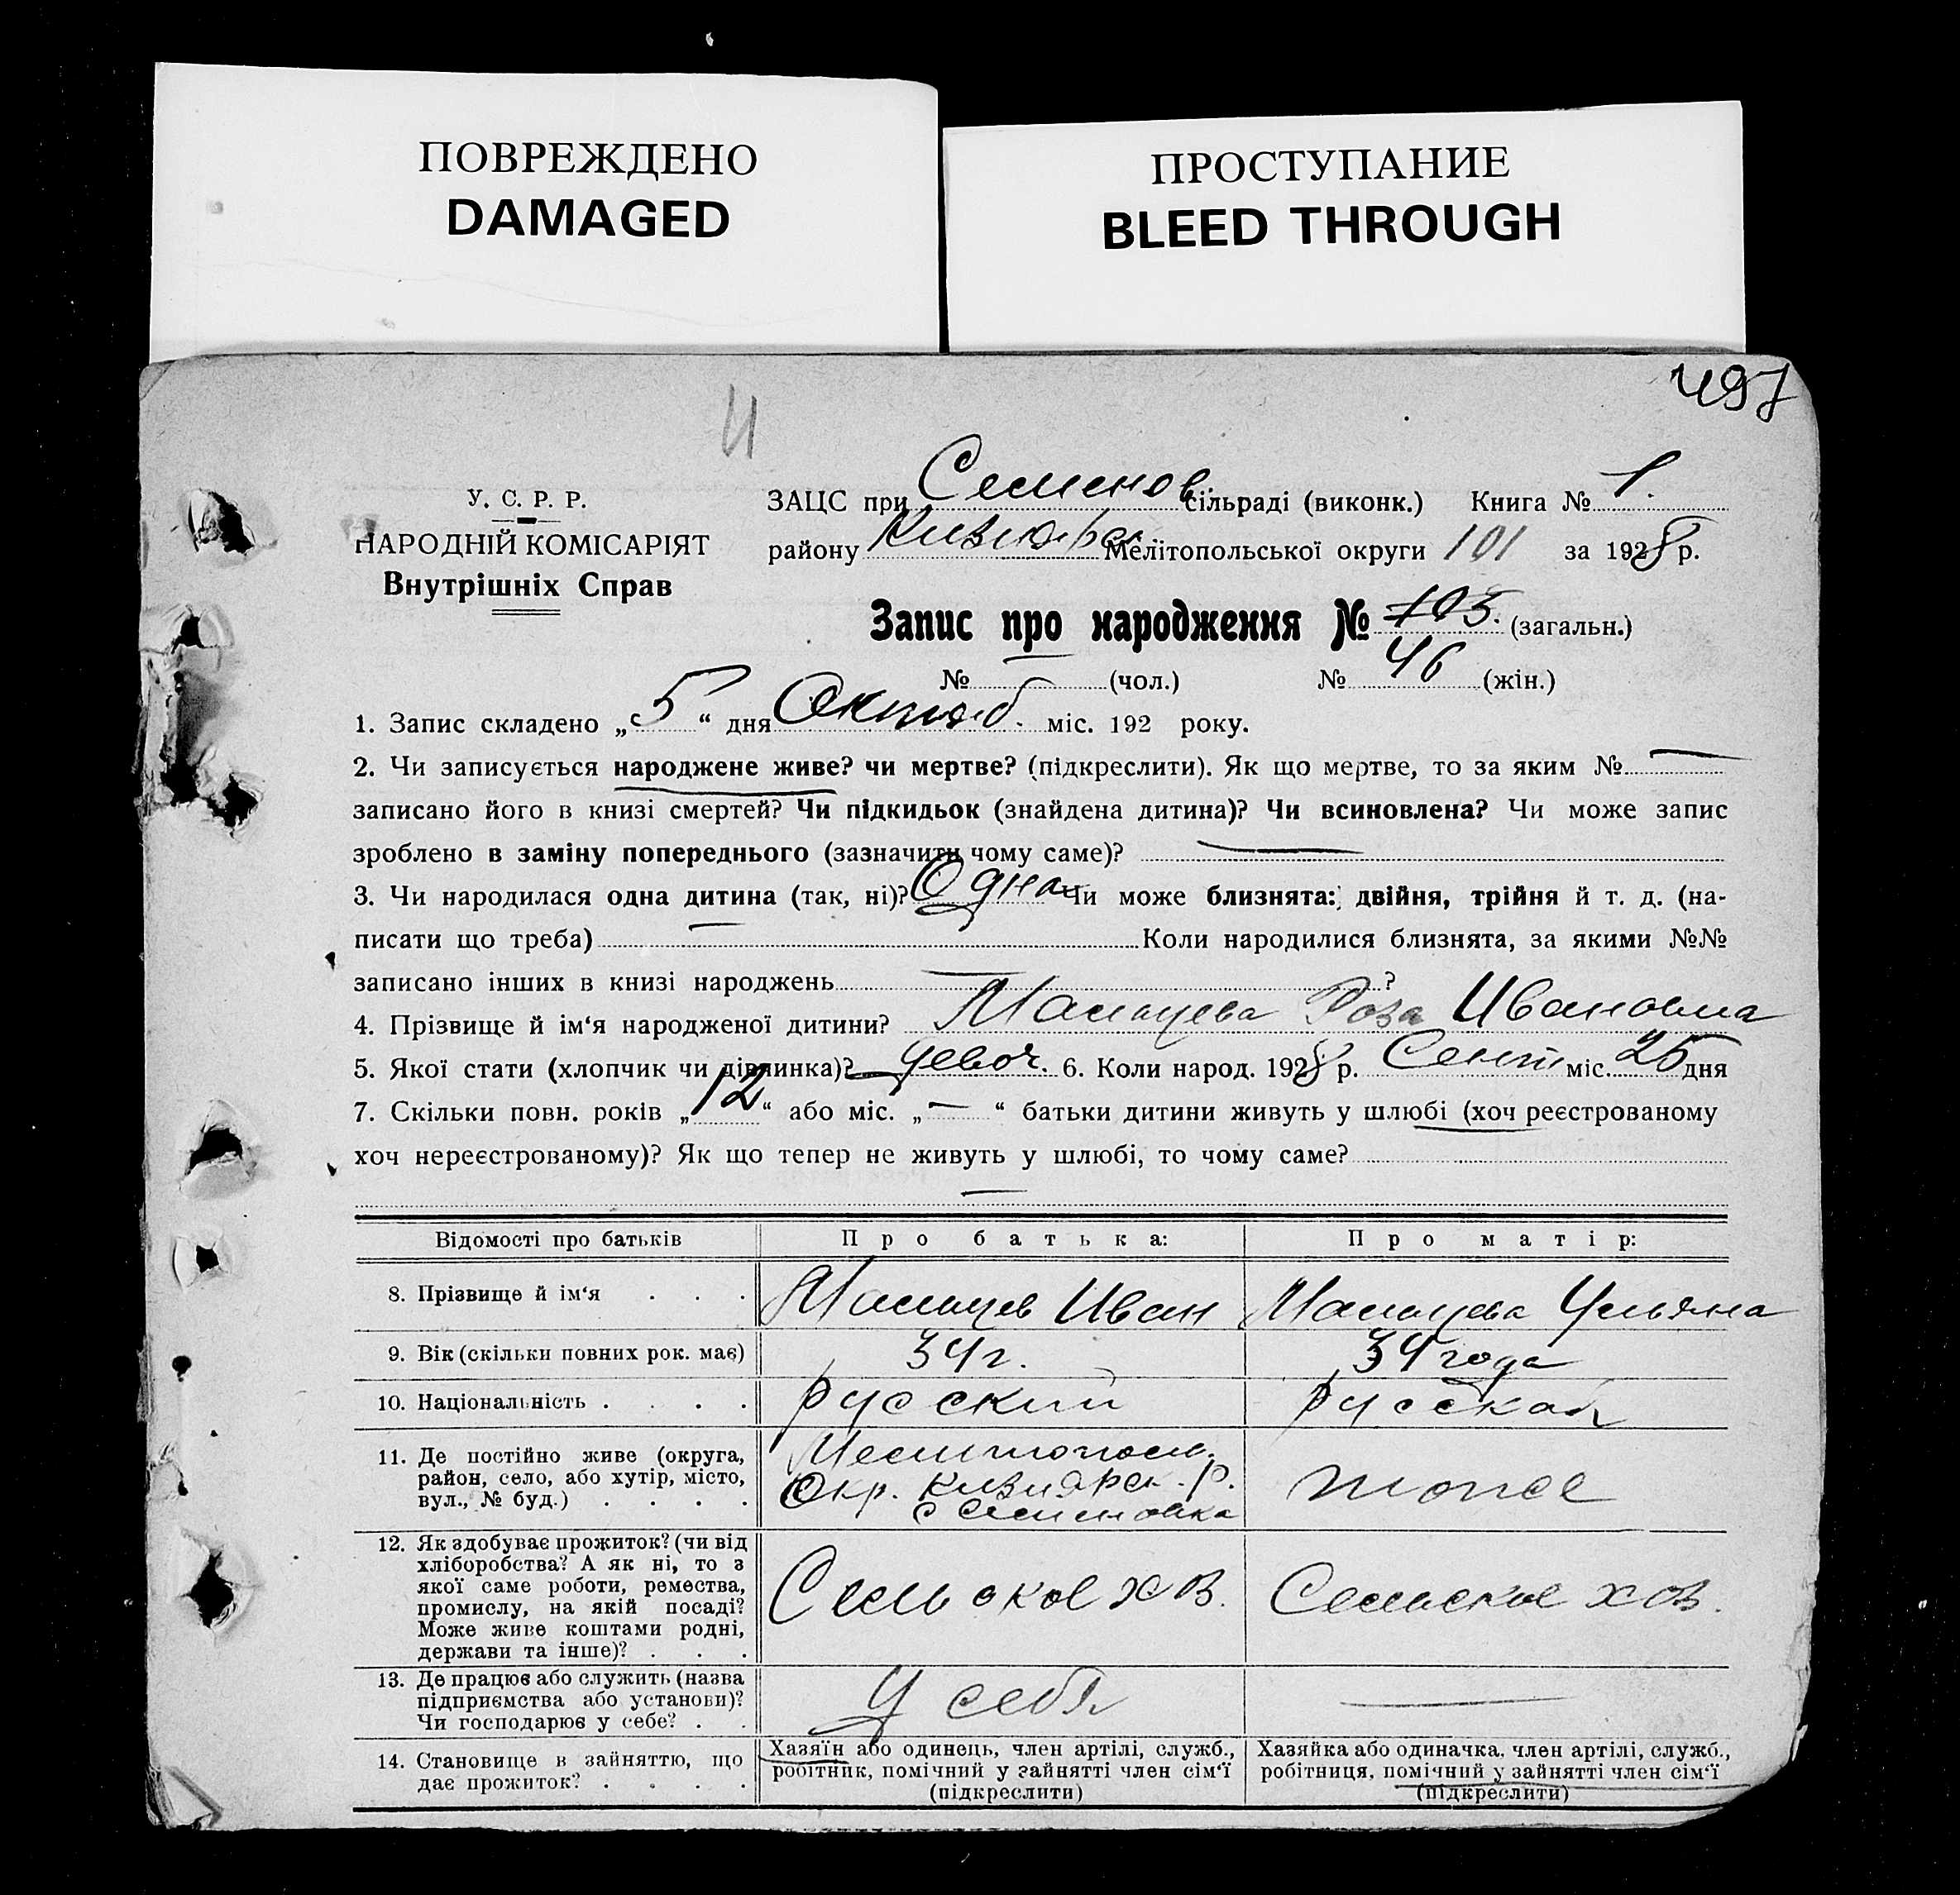 ПОВРЕЖДЕНО
DAMAGED
ПРОСТУПАНИЕ
BLEED THROUGH
497
И
У. С. Р. Р.
НАРОДНІЙ КОМІСАРІЯТ
Внутрішніх Справ
ЗАЦС при Семенов. сільраді (виконк.) Книга № 1.
району Кизиярск Мелітопольської округи 101 за 1928 р.
Запис про народження № 103. (загальн.)
№ — (чол.) № 46 (жін.)
1. Запис складено „5“ дня Октяб. міс. 192 року.
2. Чи записується народжене живе? чи мертве? (підкреслити). Як що мертве, то за яким № —
записано його в книзі смертей? Чи підкидьок (знайдена дитина)? Чи всиновлена? Чи може запис
зроблено в заміну попереднього (зазначити чому саме)? —
3. Чи народилася одна дитина (так, ні)? Одна Чи може близнята: двійня, трійня й т. д. (на-
писати що треба) — Коли народилися близнята, за якими №№
записано інших в книзі народжень — ?
4. Прізвище й ім‘я народженої дитини? Роза Ивановна
5. Якої стати (хлопчик чи дівчинка)? девоч. 6. Коли народ. 1928 р. Сент міс. 25 дня
7. Скільки повн. років „12“ або міс. „—“ батьки дитини живуть у шлюбі (хоч реєстрованому
хоч нереєстрованому)? Як що тепер не живуть у шлюбі, то чому саме?
—
Відомості про батьків Про батька: Про матір:
8. Прізвище й ім‘я . . . Иван Ульяна
9. Вік (скільки повних рок. має) 34 г. 34 года
10. Національність . . . . русский русская
11. Де постійно живе (округа, район, село, або хутір, місто, вул., № буд.) . . . . Мелитопол. Окр. Кизиярск. р. с Семеновка тоже
12. Як здобуває прожиток? (чи від хліборобства? А як ні, то з якої саме роботи, ремества, промислу, на якій посаді? Може живе коштами родні, держави та інше)? . . . Сельское хоз. Сельское хоз.
13. Де працює або служить (назва підприємства або установи)? Чи господарює у себе? . . У себя —
14. Становище в зайняттю, що дає прожиток? . . . . Хазяїн або одинець, член артілі, служб., робітник, помічний у зайнятті член сім‘ї (підкреслити) Хазяйка або одиначка, член артілі, служб., робітниця, помічний у зайнятті член сім‘ї (підкреслити)